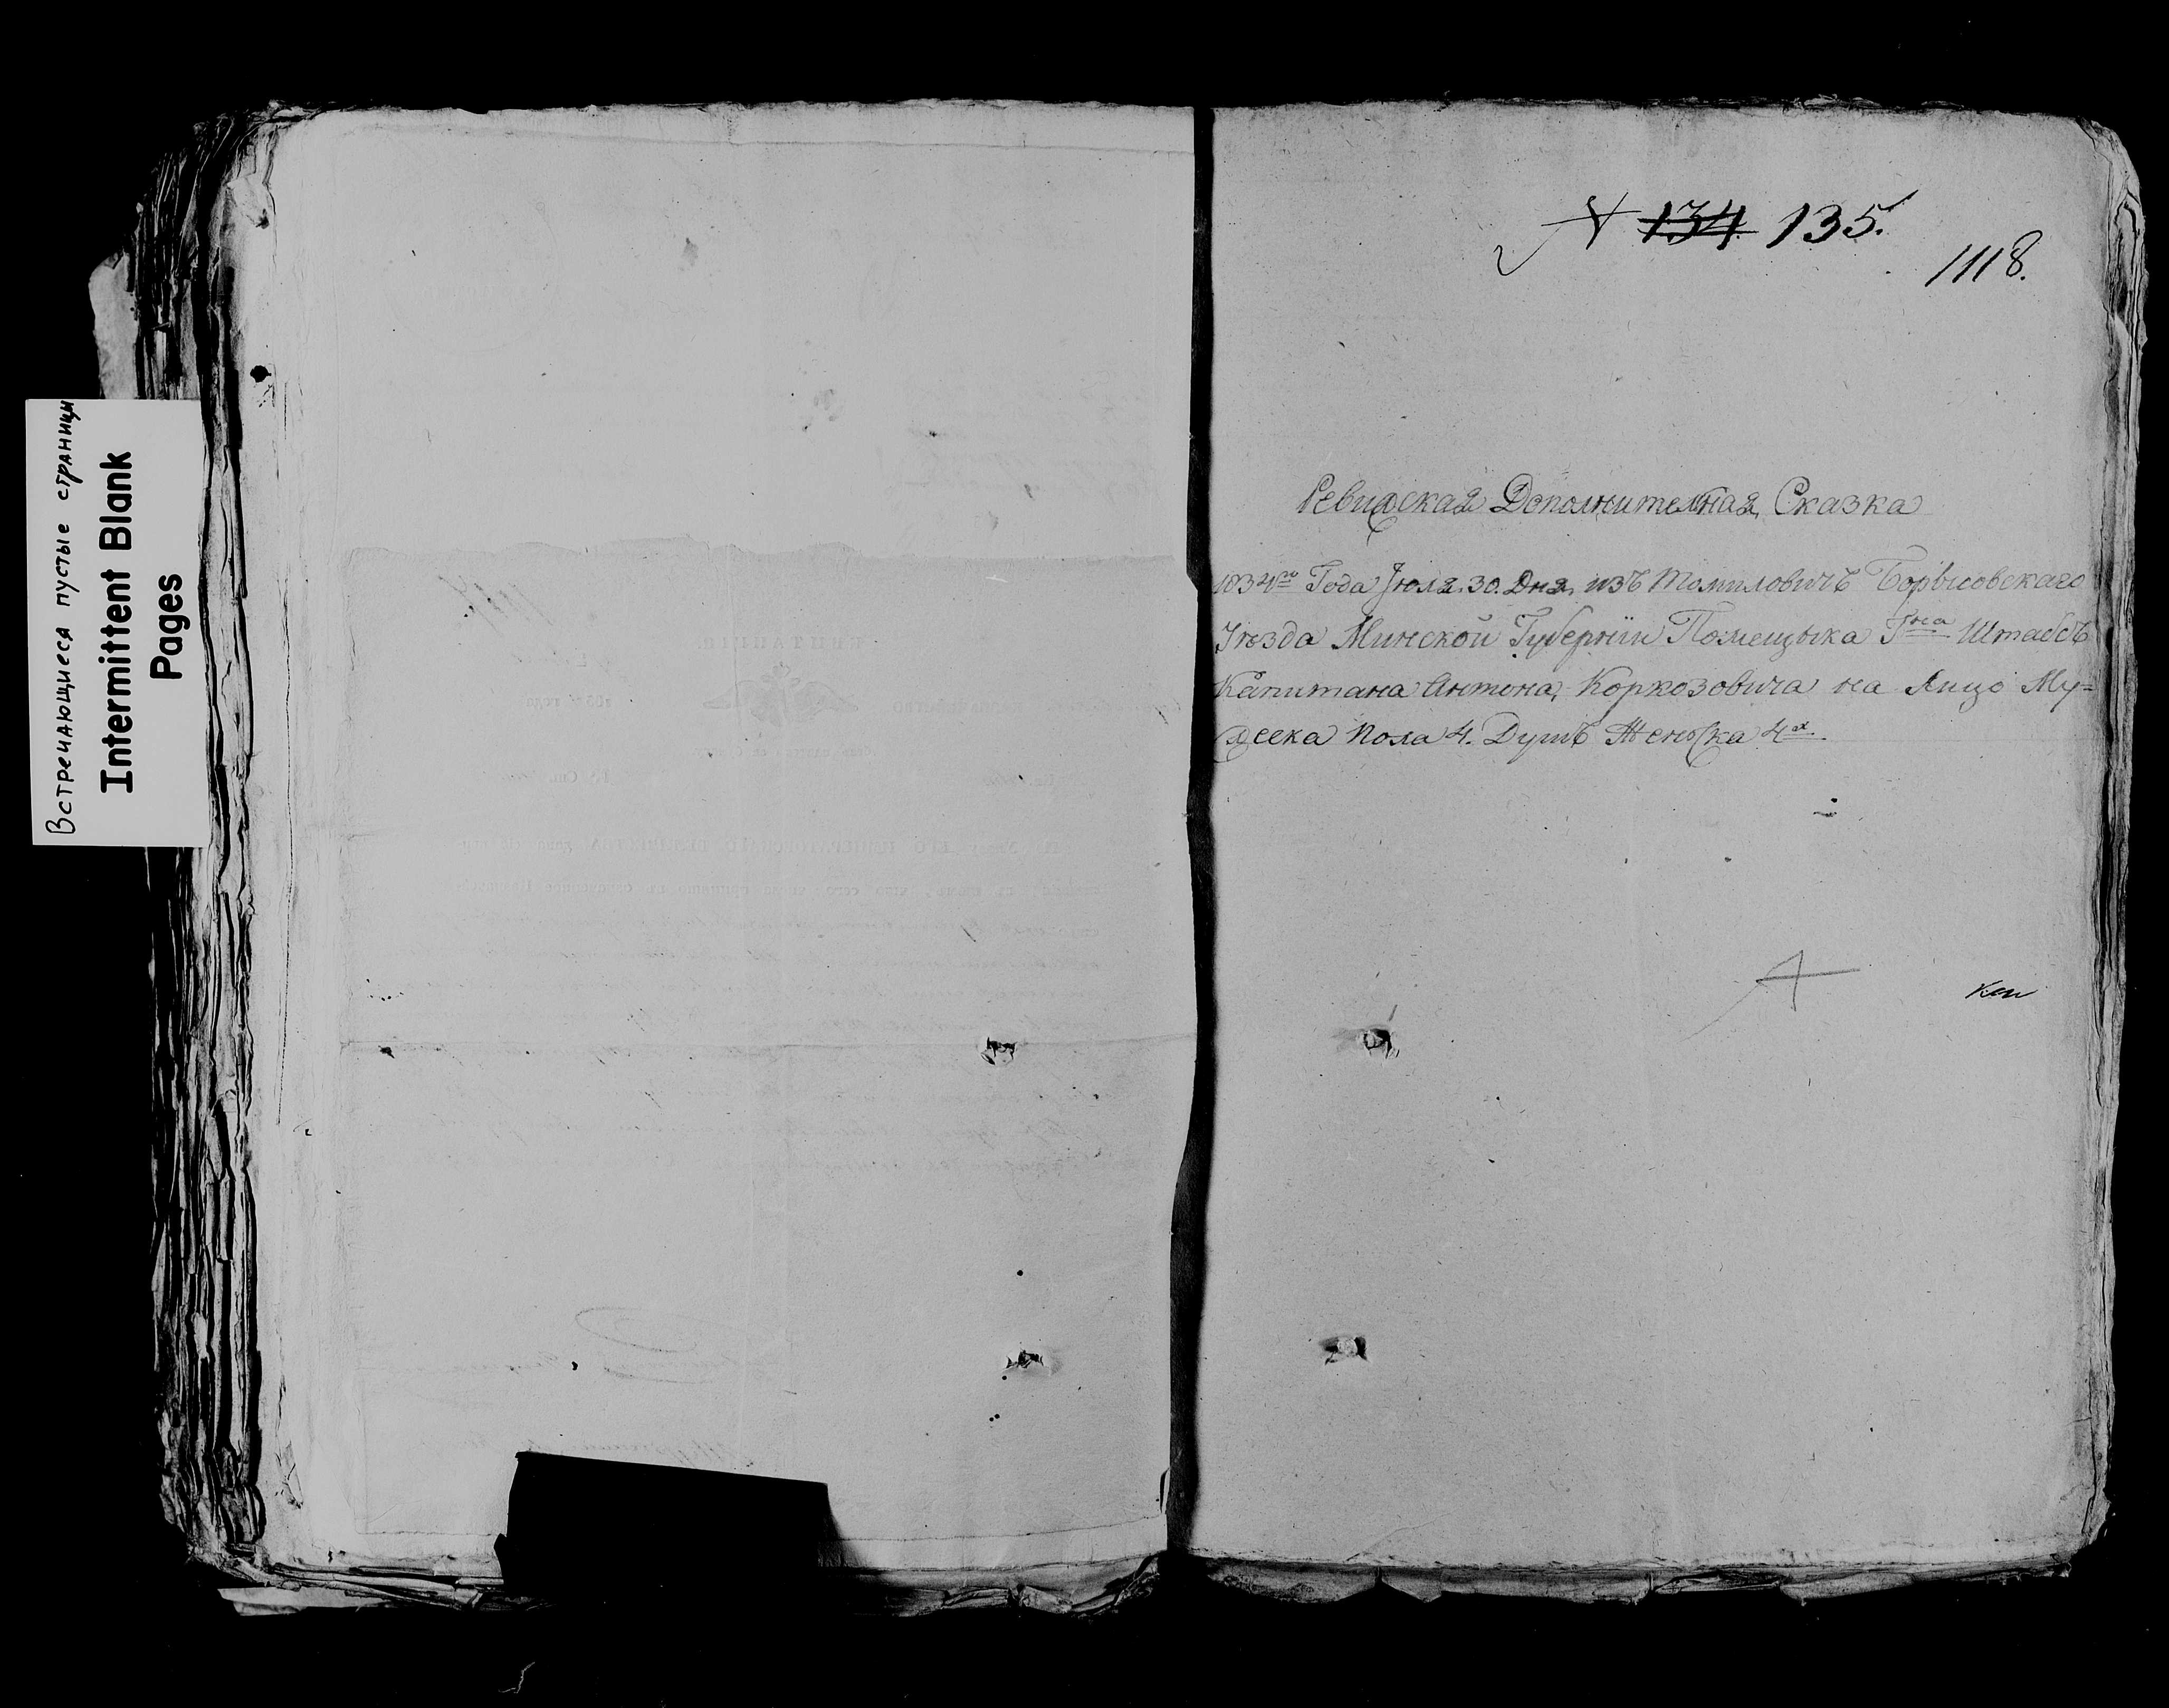 Встречающиеся пустые страницы
Intermittent Blank
Pages
№ 134 135.
1118.
Ревижская Дополнителная Сказка
1834го Года Июля 30. Дня изъ Томиловичъ Борысовскаго
Уѣзда Минской Губернїи Помещыка Гна Штабсъ
Капитана Антона Коркозовича на Лицо Му=
жеска Пола 4. Душъ Женъска 4х